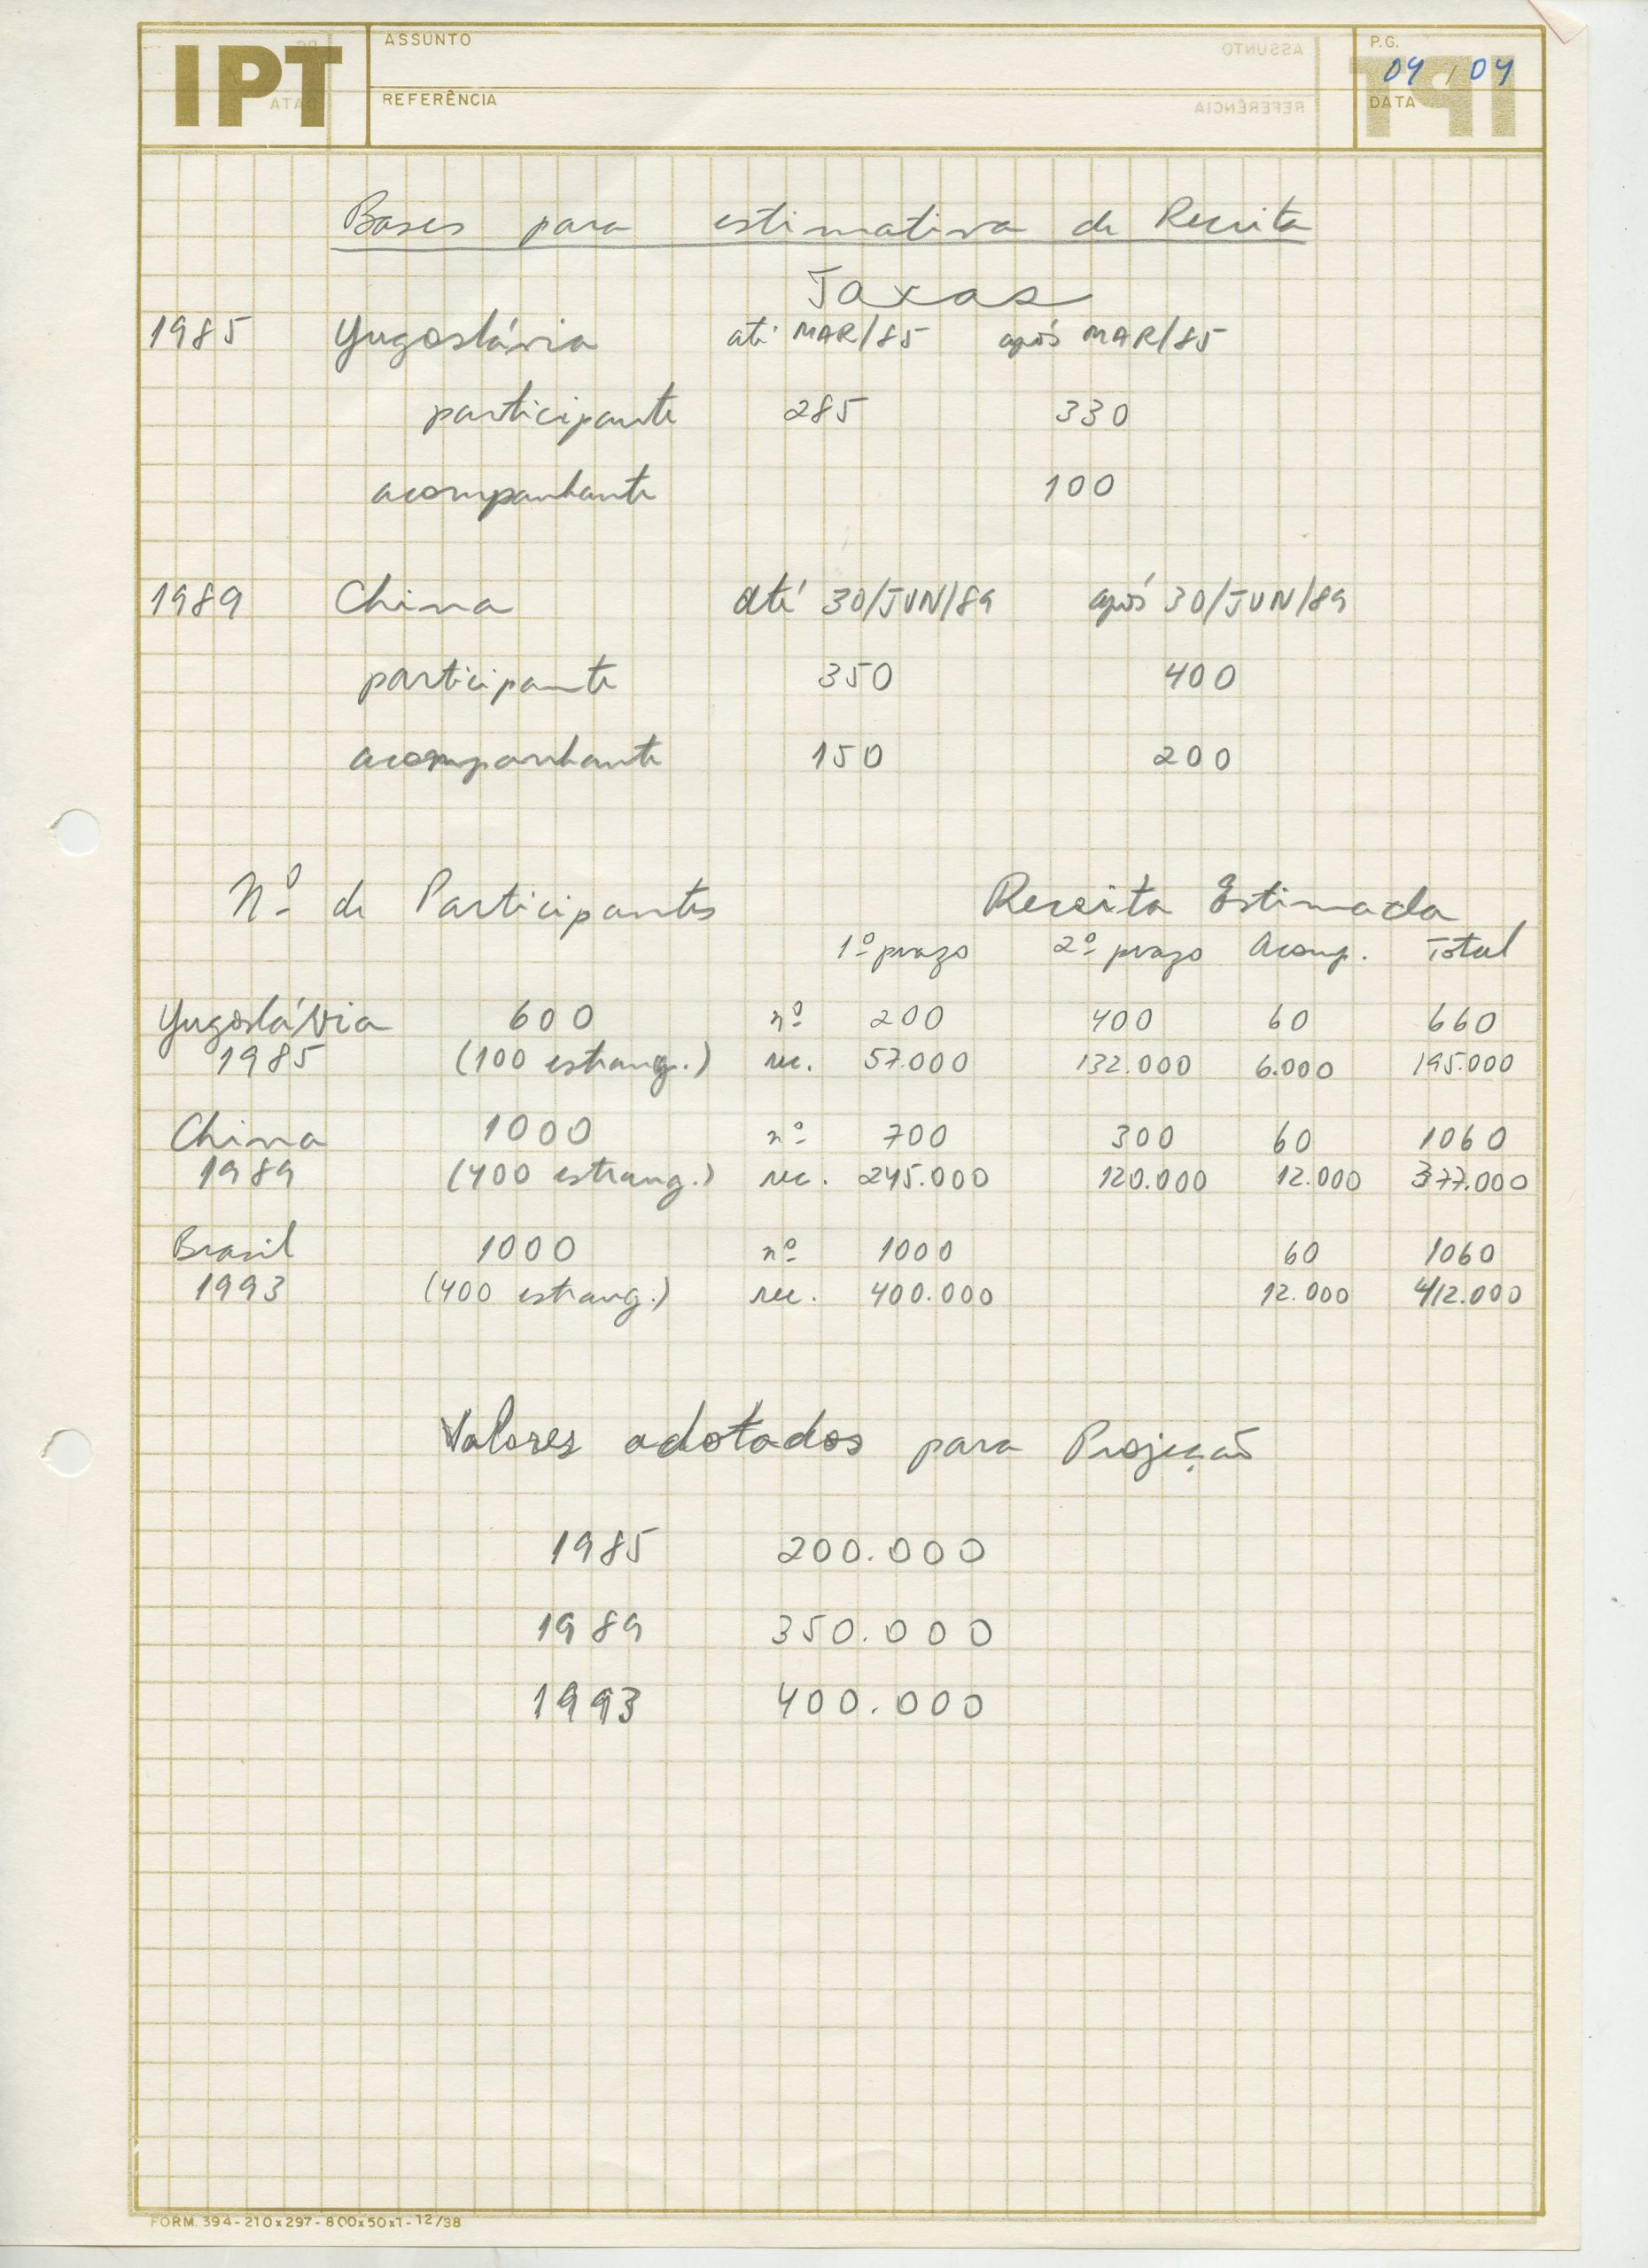 IPT
ASSUNTO
REFERÊNCIA
P.G.
04 / 04
DATA
Bases para estimativa de Receita
Taxas
1985 Yugoslávia até MAR/85 após MAR/85
participante 285 330
acompanhante 100
1989 China até 30/JUN/89 após 30/JUN/89
participante 350 400
acompanhante 150 200
Nº de Participantes Receita Estimada
1º prazo 2º prazo Acomp. Total
Yugoslávia 600 nº 200 400 60 660
1985 (100 estrang.) rec. 57.000 132.000 6.000 195.000
China 1000 nº 700 300 60 1060
1989 (400 estrang.) rec. 245.000 120.000 12.000 377.000
Brasil 1000 nº 1000 60 1060
1993 (400 estrang.) rec. 400.000 12.000 412.000
Valores adotados para Projeção
1985 200.000
1989 350.000
1993 400.000
FORM. 394-210x297-800x50x1-12/88